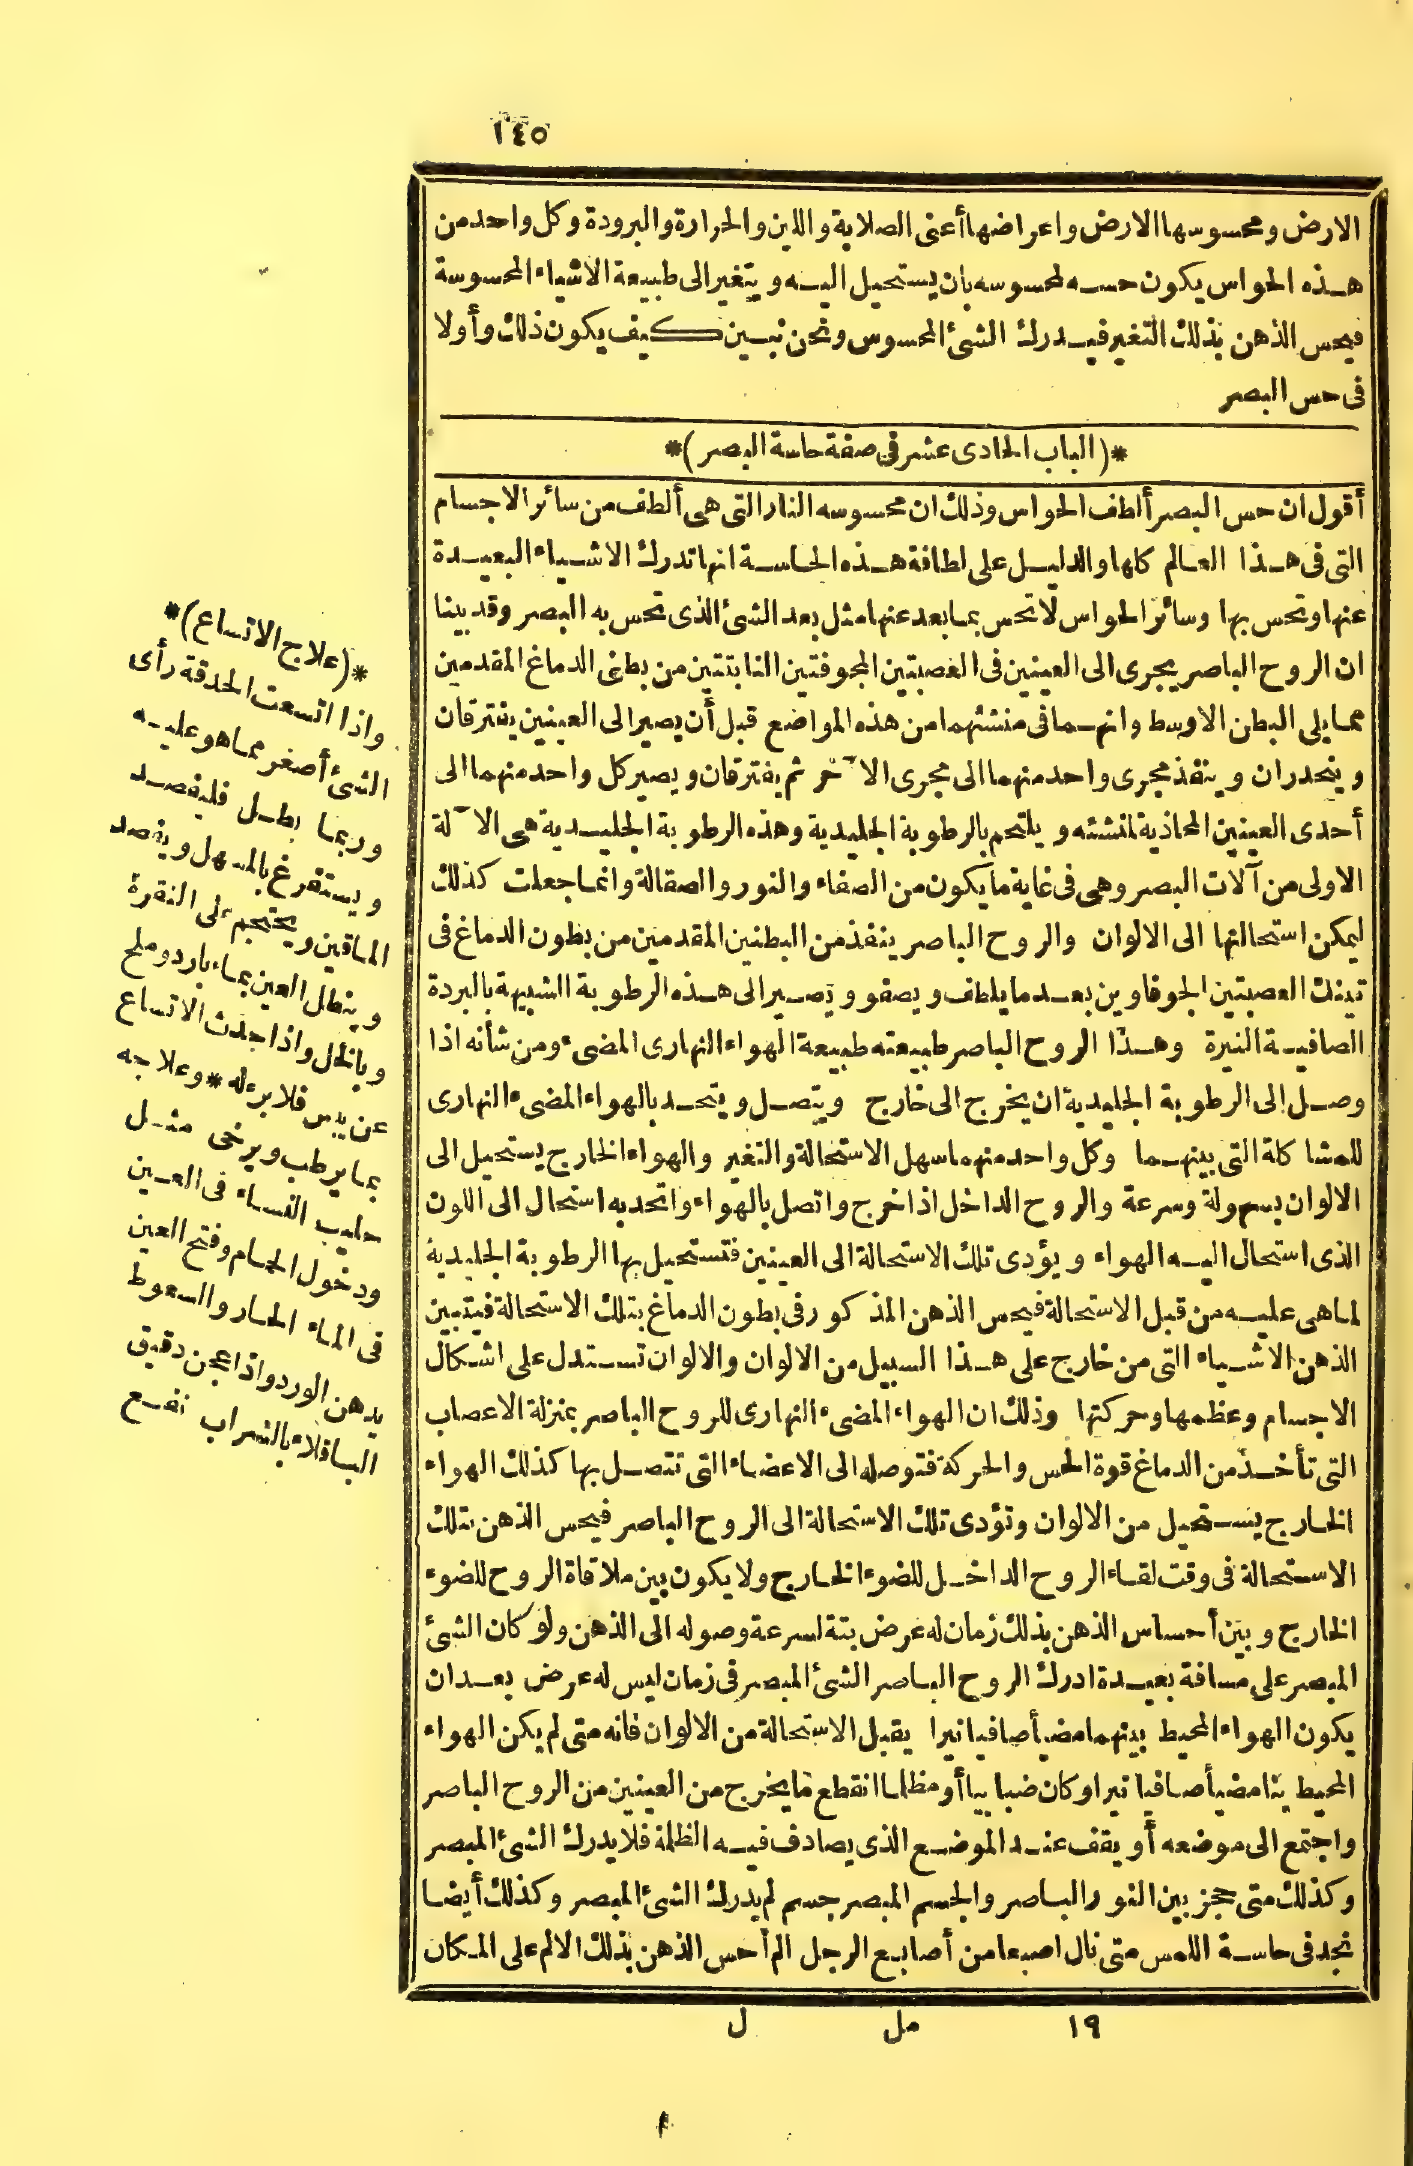 ١٤٥
الارض ومحسوسها الارض واعراضها أعنى الصلابة واللين والحرارة والبرودة وكل واحد من
هذه الحواس يكون حسه لمحسوسه بان يستحيل اليه ويتغير الى طبيعة الاشياء المحسوسة
فيحس الذهن بذلك التغير فيدرك الشئ المحسوس ونحن نبين كيف يكون ذلك وأولا
فى حس البصر
*(الباب الحادى عشر فى صفة حاسة البصر)*
أقول ان حس البصر ألطف الحواس وذلك ان محسوسه النار التى هى ألطف من سائر الاجسام
التى فى هذا العالم كلها والدليل على لطافة هذه الحاسة انها تدرك الاشياء البعيدة
عنها وتحس بها وسائر الحواس لا تحس بما بعد عنها مثل بعد الشئ الذى تحس به البصر وقد بينا
ان الروح الباصر يجرى الى العينين فى العصبتين المجوفتين النابتتين من بطنى الدماغ المقدمين
مما يلى البطن الاوسط وانهما فى منشئهما من هذه المواضع قبل أن يصير الى العينين يفترقان
وينحدران وينفذ مجرى واحد منهما الى مجرى الآخر ثم يفترقان ويصير كل واحد منهما الى
أحدى العينين المحاذية لمنشئه ويلتحم بالرطوبة الجليدية وهذه الرطوبة الجليدية هى الآلة
الاولى من آلات البصر وهى فى غاية ما يكون من الصفاء والنور والصقالة وانما جعلت كذلك
ليمكن استحالتها الى الالوان والروح الباصر ينفذ من البطنين المقدمين من بطون الدماغ فى
تينك العصبتين الجوفاوين بعد ما يلطف ويصفو ويصير الى هذه الرطوبة الشبيهة بالبردة
الصافية النيرة وهذا الروح الباصر طبيعته طبيعة الهواء النهارى المضىء ومن شأنه اذا
وصل الى الرطوبة الجليدية ان يخرج الى خارج ويتصل ويتحد بالهواء المضىء النهارى
للمشاكلة التى بينهما وكل واحد منهما سهل الاستحالة والتغير والهواء الخارج يستحيل الى
الالوان بسهولة وسرعة والروح الداخل اذا خرج واتصل بالهواء واتحد به استحال الى اللون
الذى استحال اليه الهواء ويؤدى تلك الاستحالة الى العينين فتستحيل بها الرطوبة الجليدية
لما هى عليه من قبل الاستحالة فيحس الذهن المذكور فى بطون الدماغ بتلك الاستحالة فيتبين
الذهن الاشياء التى من خارج على هذا السبيل من الالوان والالوان تستدل على اشكال
الاجسام وعظمها وحركتها وذلك ان الهواء المضىء النهارى للروح الباصر بمنزلة الاعصاب
التى تأخذ من الدماغ قوة الحس والحركة فتوصله الى الاعضاء التى تتصل بها كذلك الهواء
الخارج يستحيل من الالوان وتؤدى تلك الاستحالة الى الروح الباصر فيحس الذهن بتلك
الاستحالة فى وقت لقاء الروح الداخل للضوء الخارج ولا يكون بين ملاقاة الروح للضوء
الخارج وبين أحساس الذهن بذلك زمان له عرض بتة لسرعة وصوله الى الذهن ولو كان الشئ
المبصر على مسافة بعيدة ادرك الروح الباصر الشئ المبصر فى زمان ليس له عرض بعد ان
يكون الهواء المحيط بينهما مضيأ صافيا نيرا يقبل الاستحالة من الالوان فانه متى لم يكن الهواء
المحيط بنا مضيأ صافيا نيرا وكان ضبابيا أو مظلما انقطع ما يخرج من العينين من الروح الباصر
واجتمع الى موضعه أو يقف عند الموضع الذى يصادف فيه الظلمة فلا يدرك الشئ المبصر
وكذلك متى حجز بين النور الباصر والجسم المبصر جسم لم يدرك الشئ المبصر وكذلك أيضا
نجد فى حاسة اللمس متى نال اصبعا من أصابع الرجل الم أحس الذهن بذلك الالم على المكان
١٩ مل ل
*(علاج الاتساع)*
واذا اتسعت الحدقة رأى
الشئ أصغر مما هو عليه
وربما بطل فليفصد
ويستفرغ بالمسهل ويفصد
الماقين ويحتجم على النقرة
وينطل العين بماء بارد وملح
وبالخل واذا حدث الاتساع
عن يبس فلا برء له * وعلاجه
بما يرطب ويرخى مثل
حليب النساء فى العين
ودخول الحمام وفتح العين
فى الماء الحار والسعوط
بدهن الورد واذا عجن دقيق
الباقلاء بالشراب نفع